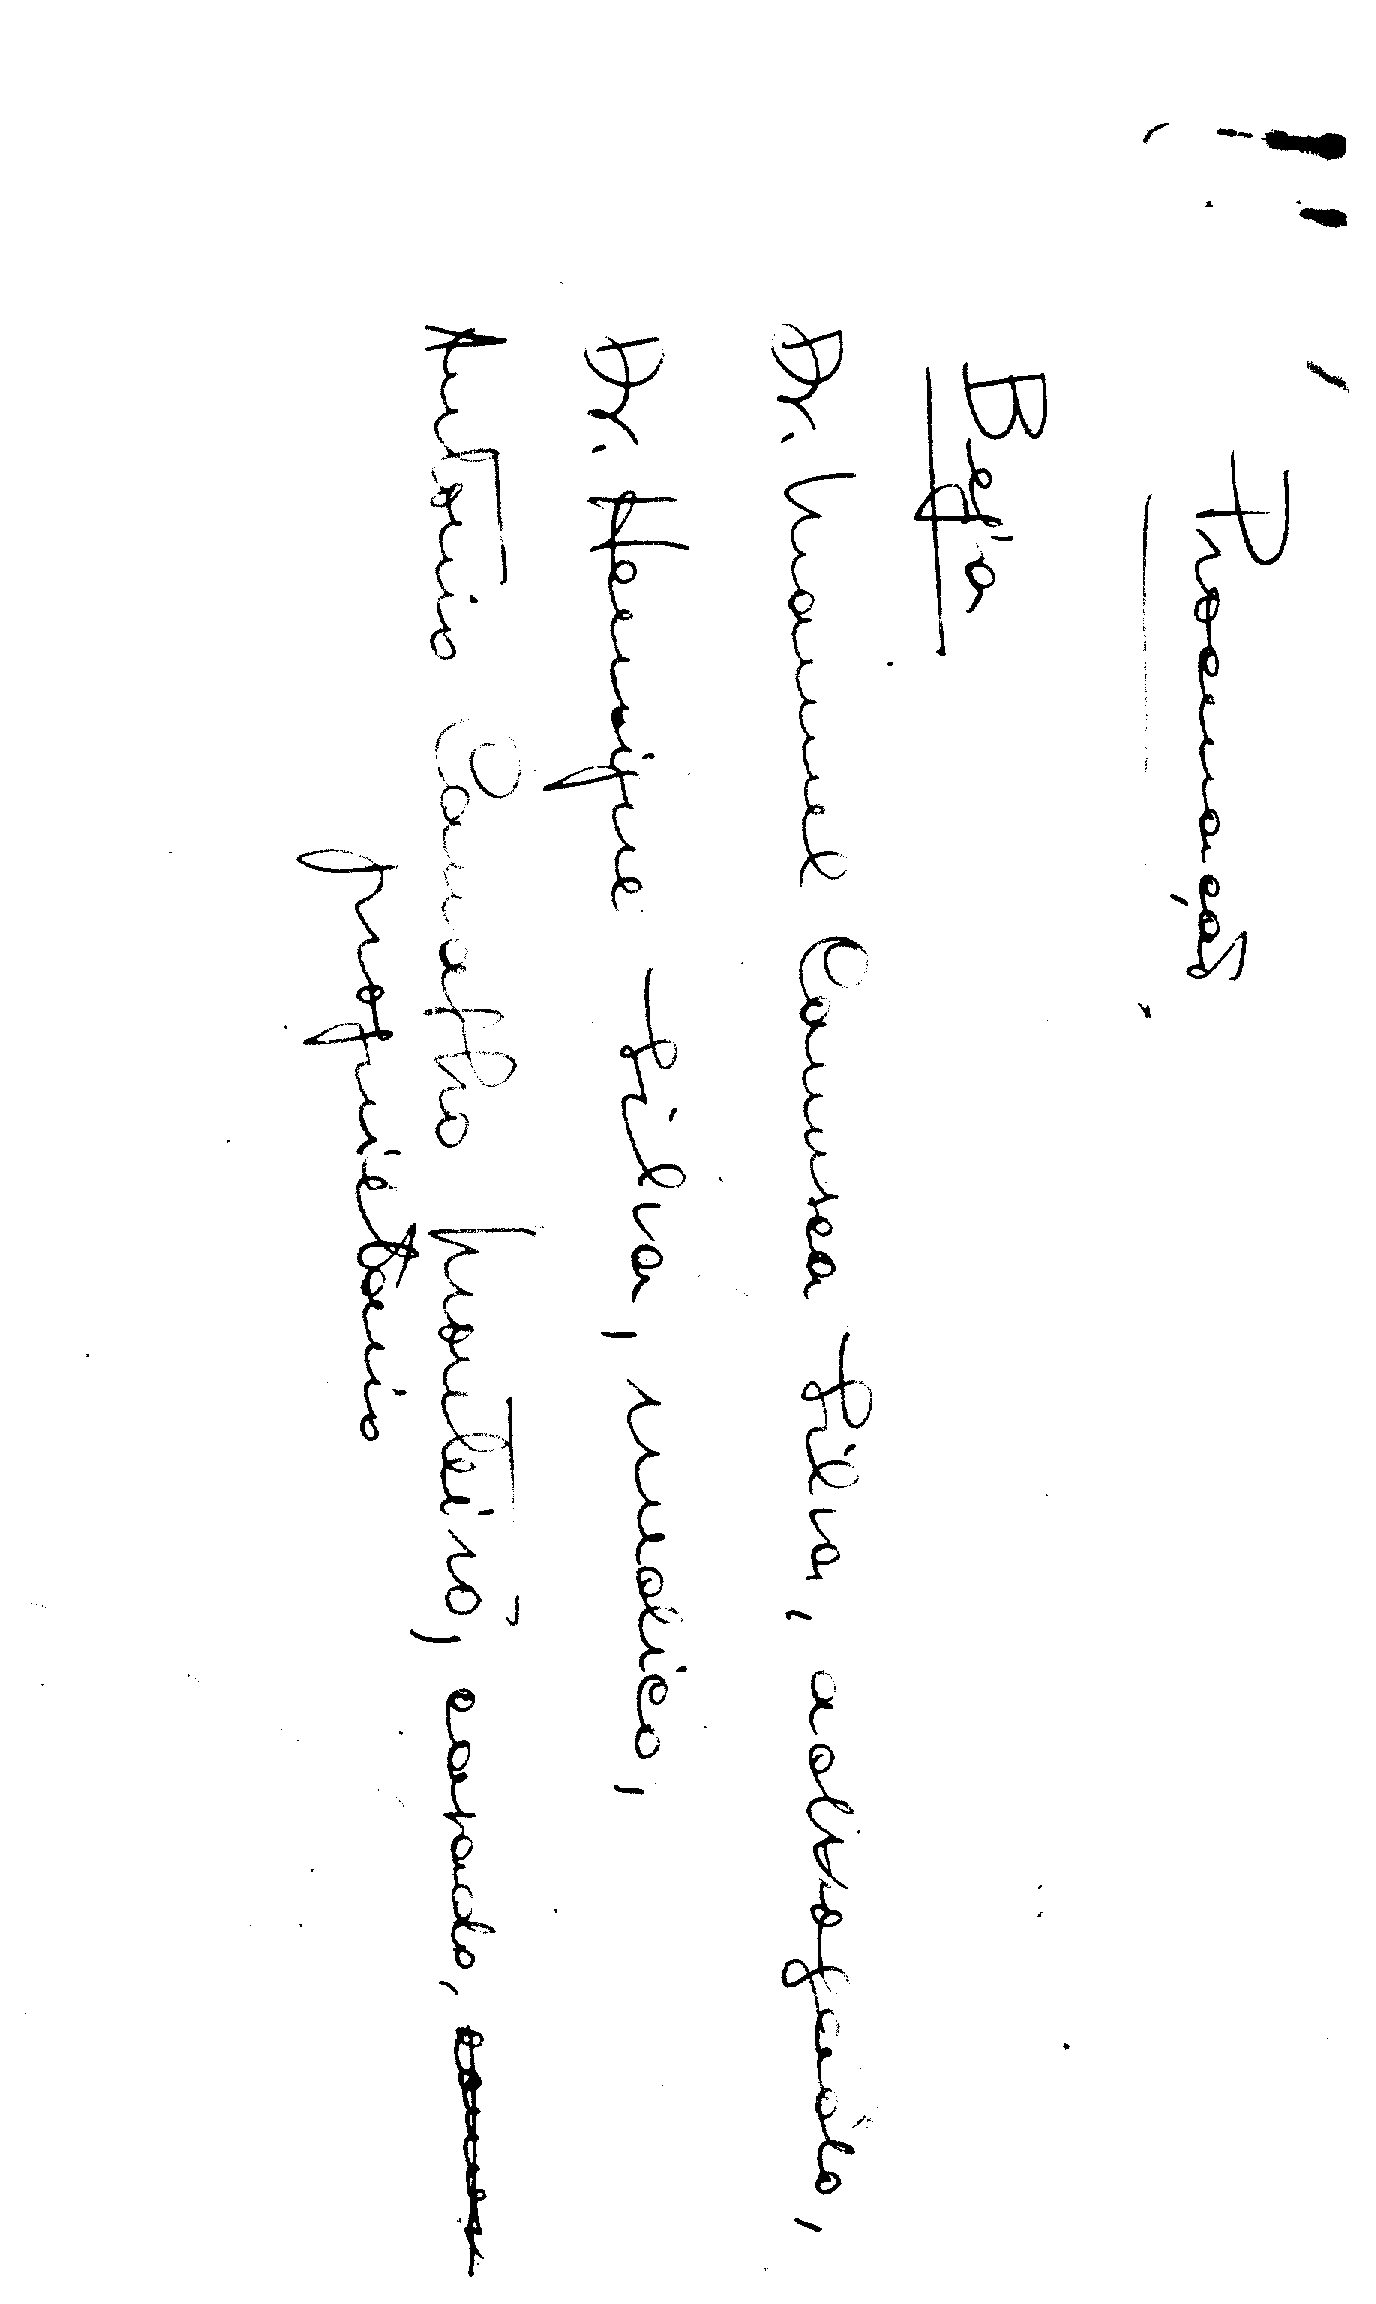 Procuração
Beja
Dr. Manuel Camesa Silva, advogado,
Dr. Henrique Silva, médico,
António Carvalho Monteiro, casado,
proprietário